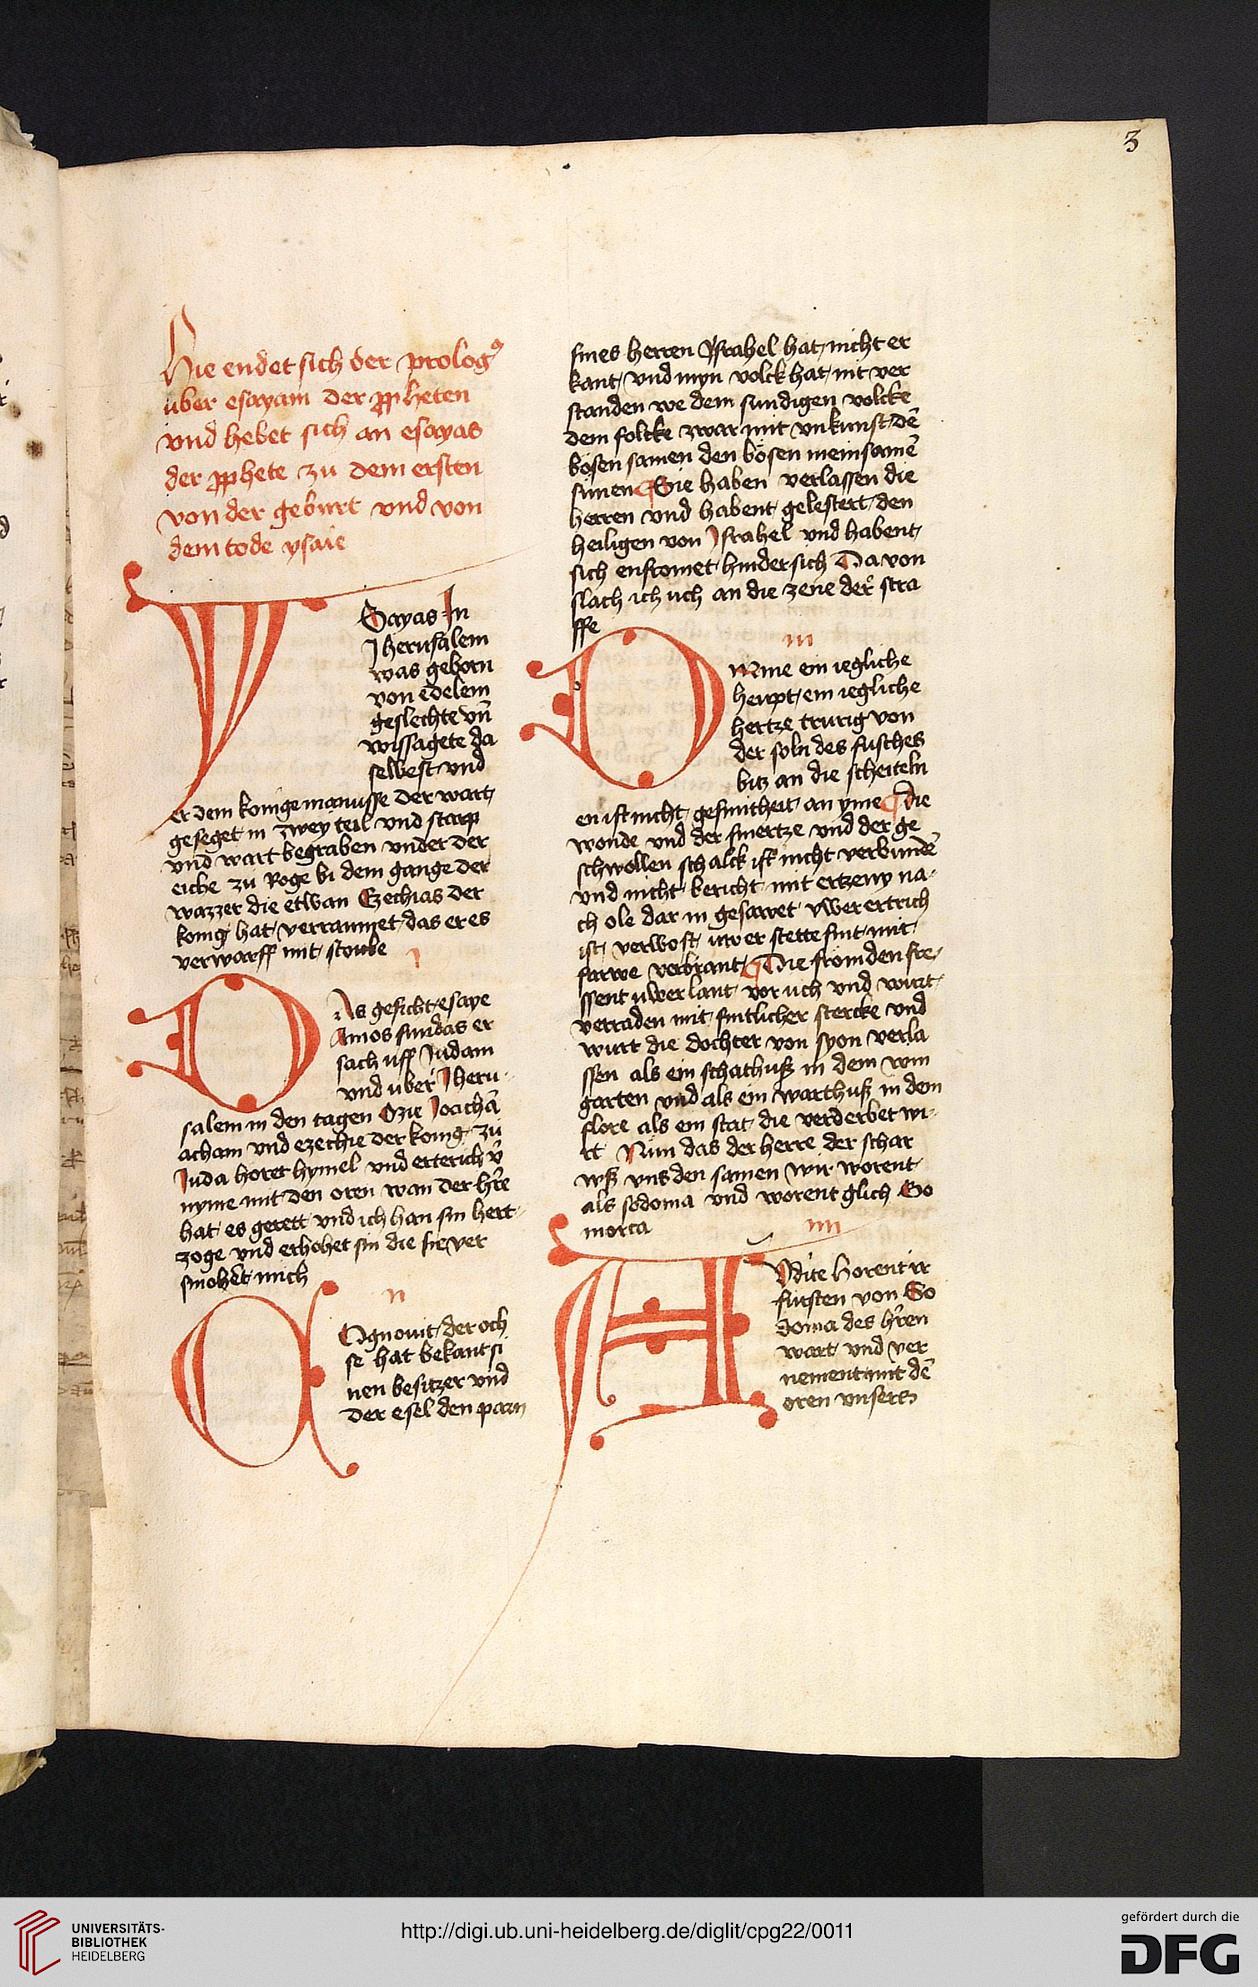 3
Hie endet sich der prologꝰ
uber esayam der ꝓpheten
vnd hebet sich an esayas
der ꝓphete zu dem ersten
von der geburt vnd von
dem tode ysaie
Y
Sayas In
Jherusalem
was geborn
von edelem
geslechte vn̄
wissagete da
selbest vnd
er dem konige manasse der wart
geseget in zwey teil vnd starp
vnd wart begraben vnder der
eiche zu Roge bi dem gange der
wazzer die etwan Ezechias der
konig hat verraumet das er es
verwarff mit stoube
I
D
As gesicht esaye
Amos sun das er
sach uff Judam
vnd uber Jheru
salem in den tagen Ozie Joachā
acham vnd ezechie der konig zu
Juda horet hymel vnd erterich v̄
nyme mit den oren wan der h̄re
hat es gerett vnd ich han sin hert
zoge vnd erhohet sin die sie ver
smohet mich
II
C
Ognouit der och
se hat bekant si
nen besitzer vnd
der esel den parn
sines herren Jsrahel hat nicht er
kant vnd myn volck hat nit ver
standen we dem sundigen volcke
dem folcke zwar mit vnkunst dē
bösen samen den bösen meinsamē
sunen Sie haben verlassen die
herren vnd habent gelestert den
heiligen von Jsrahel vnd habent
sich enfromet hinder sich Da von
slach ich uch an die zene der stra
ffe
III
O
Mnne ein iegliche
heupt ein iegliche
hertze trurig von
der soln des fusches
bitz an die scheiteln
en ist nicht gesuntheit an yme Die
wonde vnd der smertze vnd der ge
schwollen schalck ist nicht verbundē
vnd nicht bericht mit ertzeny na
ch ole dar in gesarvet vwer ertrich
ist verwost uwer stette sint mit
farwe verbrant Die fromden fre
ssent uwer lant vor uch vnd wurt
verraden mit sintlicher stercke vnd
wurt die dochter von syon verla
ssen als ein schathuß in dem win
garten vnd als ein warthuß in dem
flore als ein stat die verderbet wi
rt Nun das der herre der schar
wß vns den samen wir worent
als sodoma vnd worent glich Go
morra
IIII
A
Vdite Horent ir
fursten von So
doma des h̄ren
wart vnd ver
nement mit dē
oren vnsers
UNIVERSITÄTS-
BIBLIOTHEK
HEIDELBERG
http://digi.ub.uni-heidelberg.de/diglit/cpg22/0011
gefördert durch die
DFG